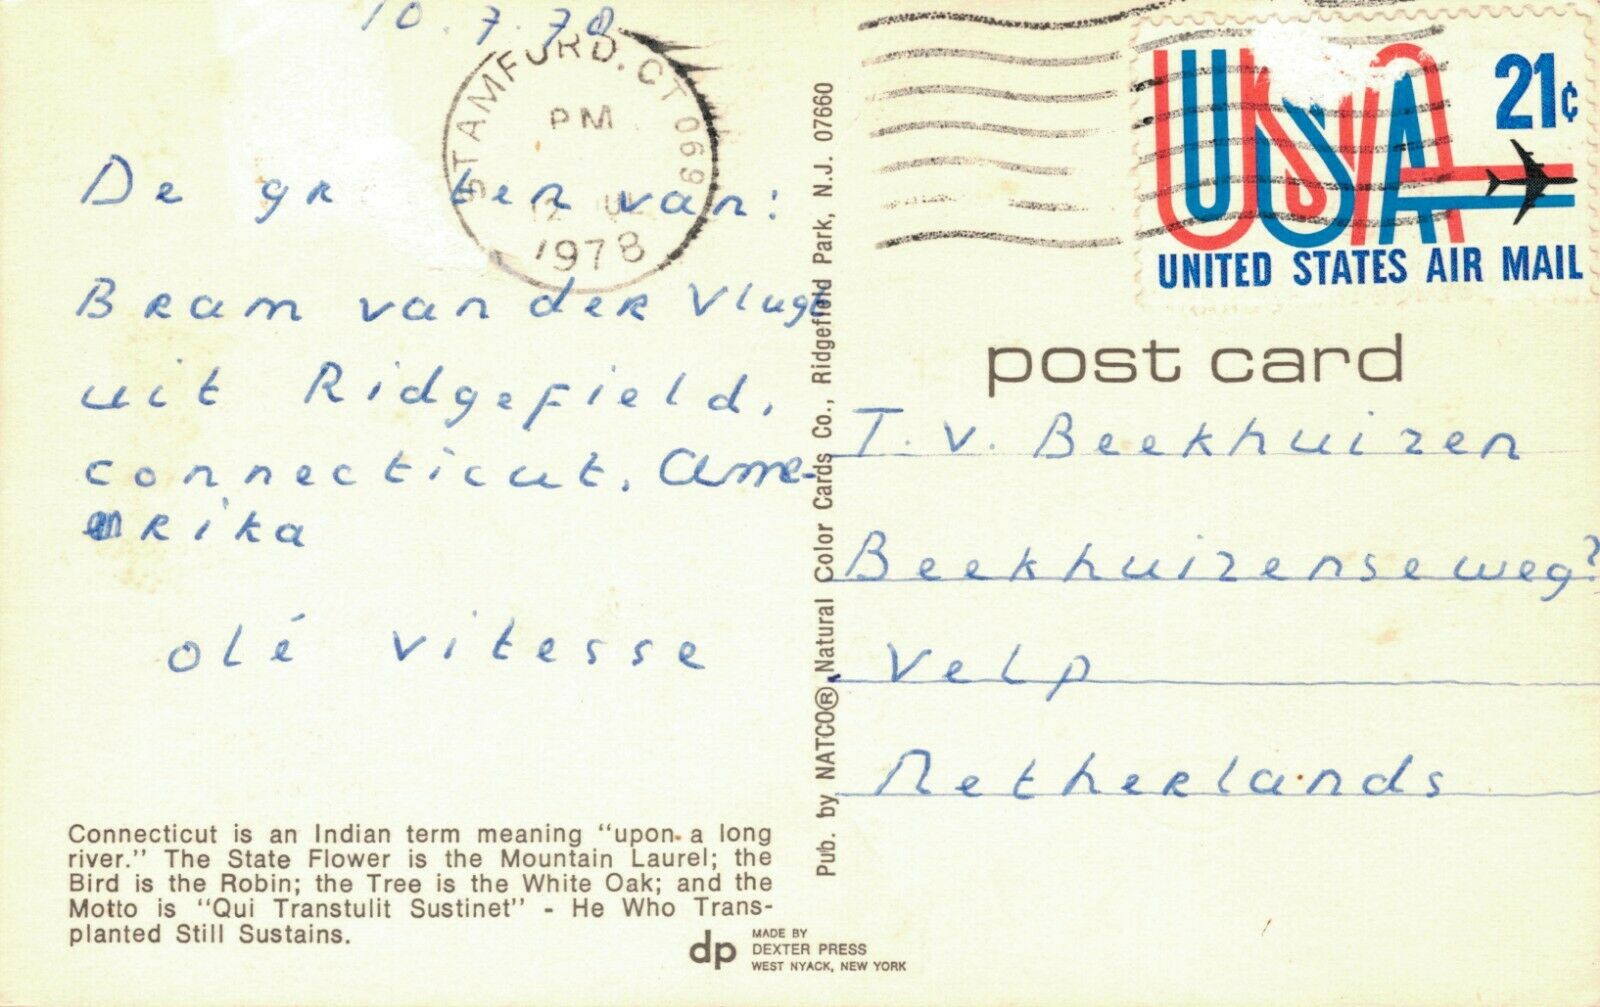 10.7.78
STAMFORD, CT 069
PM
12
1978
De gr ten van:
Bram van der Vlug
uit Ridgefield,
connecticut, Ame-
rika
olé vitesse
Connecticut is an Indian term meaning "upon a long
river." The State Flower is the Mountain Laurel; the
Bird is the Robin; the Tree is the White Oak; and the
Motto is "Qui Transtulit Sustinet" - He Who Trans-
planted Still Sustains.
dp
MADE BY
DEXTER PRESS
WEST NYACK, NEW YORK
Pub. by NATCO® Natural Color Cards Co., Ridgefield Park, N.J. 07660
USA
21¢
UNITED STATES AIR MAIL
post card
T. v. Beekhuizen
Beekhuizenseweg?
Velp
Netherlands